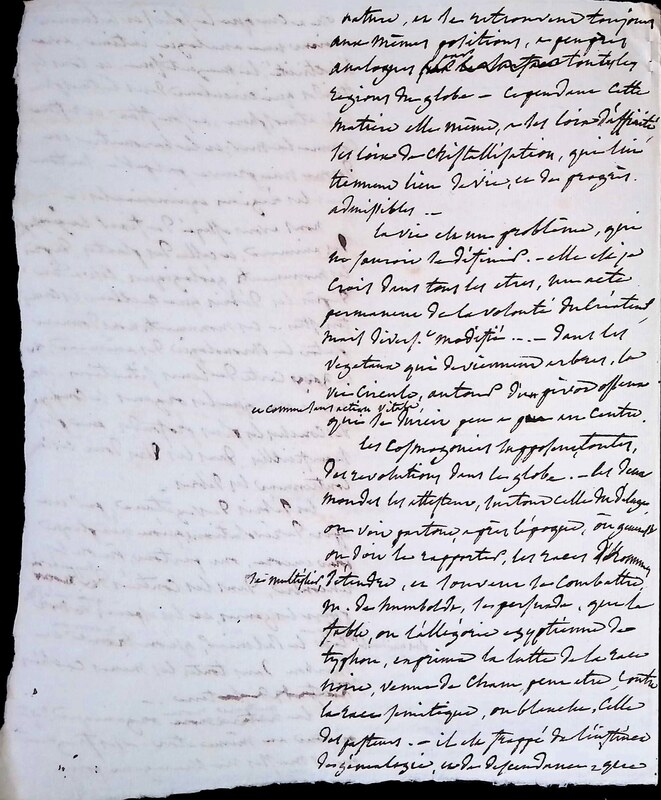 nature, et se retrouvent toujours
aux mêmes positions, a peu près
analogues toutes les
régions du globe – cependant cette
matiere elle même, a ses loix d'affinité
ses loix de cristallisation, qui lui
tiennent lieu de vie, et de progrès
admissibles. –
la vie est un problème, qui
ne sauroit se définir. – elle est je
crois dans tous les etres, un acte
permanent de la volonté du Créateur,
mais divers.t modifié ... – dans les
vegetaux qui deviennent arbres, la
vie circule, autour d'un pivot osseux
et comme sans action vitale,
qui se durcit peu a peu au centre.
les Cosmogonies supposent toutes,
des revolutions dans le globe. – les deux
mondes les attestent, surtout celle du déluge
on voit partout, après l'époque, où
on doit le rapporter, les races d'hommes
se multiplier, s'étendre, et souvent se combattre
M. de humboldt, est persuadé, que la
fable, ou l'allégorie egyptienne de
typhon, exprime la lutte de la race
noire, venue de Cham peut etre, contre
la race semitique, ou blanche, celle
des pasteurs. – il est frappé de
de généalogie, et de descendance que